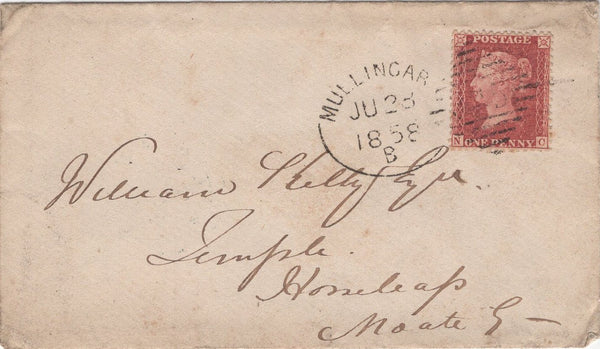 POSTAGE
N ONE PENNY O
MULLINGAR
JU 28
1858
B
William Kelly Esqr
Temple.
Horseleap
Moate